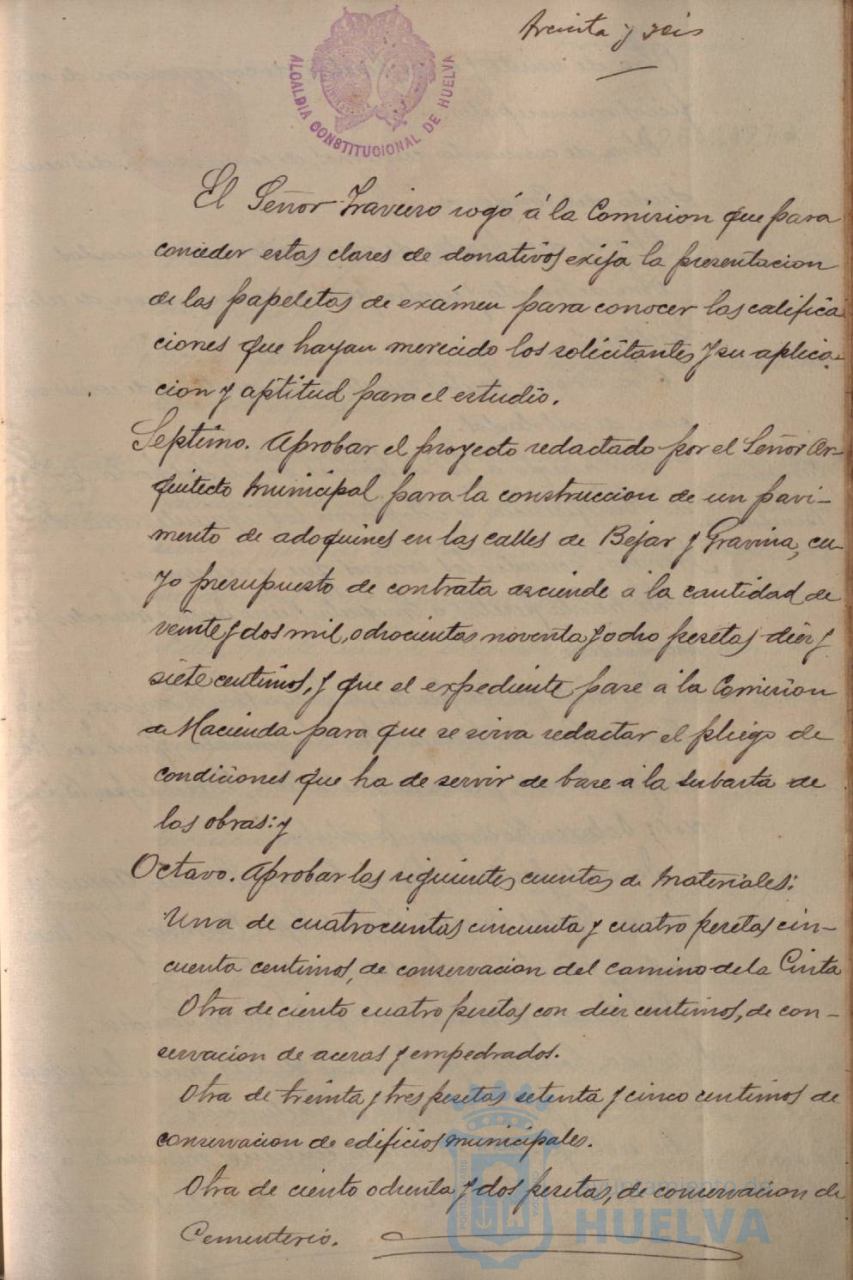 treinta y seis
ALCALDIA CONSTITUCIONAL DE HUELVA
El Señor Traviero rogó á la Comision que para
conceder estas clases de donativos exija la presentacion
de las papeletas de exámen para conocer las califica
ciones que hayan merecido los solicitantes y su aplica-
cion y aptitud para el estudio.
Septimo. Aprobar el proyecto redactado por el Señor Ar-
quitecto Municipal para la construccion de un pavi-
mento de adoquines en las calles de Bejar y Gravina, cu-
yo presupuesto de contrata asciende á la cantidad de
veinte y dos mil, ochocientas noventa y ocho pesetas diez y
siete centimos, y que el expediente pase á la Comision
de Hacienda para que se sirva redactar el pliego de
condiciones que ha de servir de base á la subasta de
las obras: y
Octavo. Aprobar las siguientes cuentas de materiales:
Una de cuatrocientas cincuenta y cuatro pesetas cin-
cuenta centimos, de conservacion del camino de la Cinta
Otra de ciento cuatro pesetas con diez centimos, de con-
servacion de aceras y empedrados.
Otra de treinta y tres pesetas setenta y cinco centimos de
conservacion de edificios municipales.
Otra de ciento ochenta y dos pesetas, de conservacion de
Cementerio.
Ayuntamiento de
HUELVA